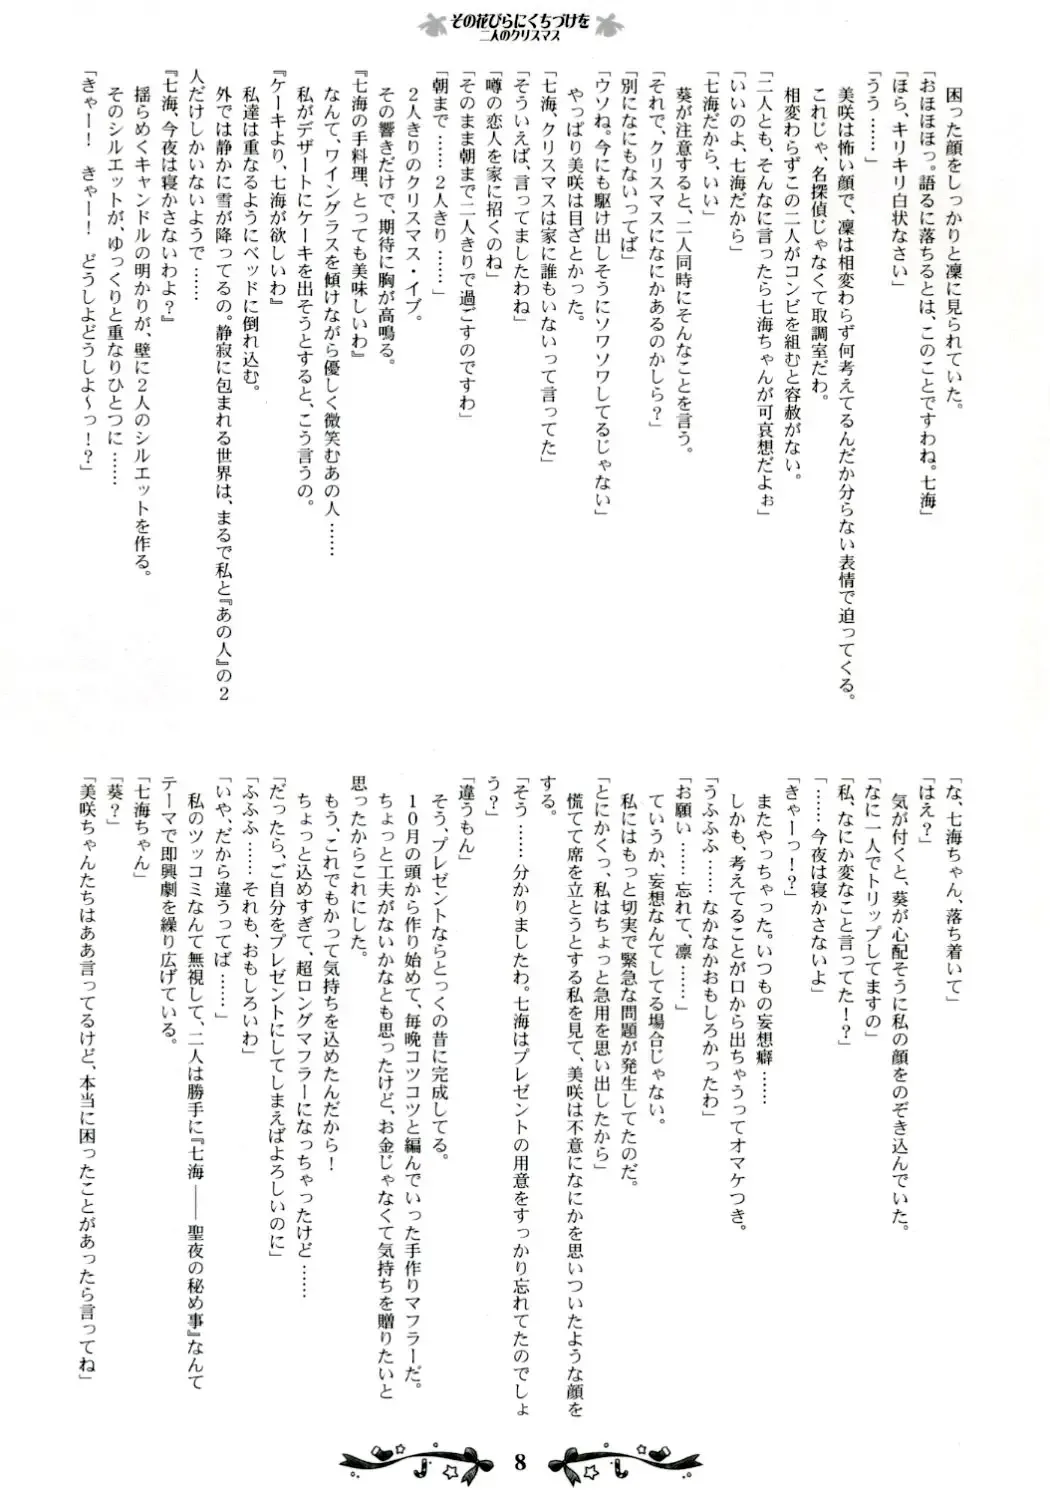 その花びらにくちづけを
二人のクリスマス
困った顔をしっかりと凜に見られていた。
「おほほほっ。語るに落ちるとは、このことですわね。七海」
「ほら、キリキリ白状なさい」
「うう……」
美咲は怖い顔で、凜は相変わらず何考えてるんだか分らない表情で迫ってくる。
これじゃ、名探偵じゃなくて取調室だわ。
相変わらずこの二人がコンビを組むと容赦がない。
「二人とも、そんなに言ったら七海ちゃんが可哀想だよぉ」
「いいのよ、七海だから」
「七海だから、いい」
葵が注意すると、二人同時にそんなことを言う。
「それで、クリスマスになにかあるのかしら？」
「別になにもないってば」
「ウソね。今にも駆け出しそうにソワソワしてるじゃない」
やっぱり美咲は目ざとかった。
「七海、クリスマスは家に誰もいないって言ってた」
「そういえば、言ってましたわね」
「噂の恋人を家に招くのね」
「そのまま朝まで二人きりで過ごすのですわ」
「朝まで……２人きり……」
２人きりのクリスマス・イブ。
その響きだけで、期待に胸が高鳴る。
『七海の手料理、とっても美味しいわ』
なんて、ワイングラスを傾けながら優しく微笑むあの人……
私がデザートにケーキを出そうとすると、こう言うの。
『ケーキより、七海が欲しいわ』
私達は重なるようにベッドに倒れ込む。
外では静かに雪が降ってるの。静寂に包まれる世界は、まるで私と『あの人』の２
人だけしかいないようで……
『七海、今夜は寝かさないわよ？』
揺らめくキャンドルの明かりが、壁に２人のシルエットを作る。
そのシルエットが、ゆっくりと重なりひとつに……
「きゃー！　きゃー！　どうしよどうしよ～っ！？」
「な、七海ちゃん、落ち着いて」
「はえ？」
気が付くと、葵が心配そうに私の顔をのぞき込んでいた。
「なに一人でトリップしてますの」
「私、なにか変なこと言ってた！？」
「……今夜は寝かさないよ」
「きゃーっ！？」
またやっちゃった。いつもの妄想癖……
しかも、考えてることが口から出ちゃうってオマケつき。
「うふふふ……なかなかおもしろかったわ」
「お願い……忘れて、凜……」
ていうか、妄想なんてしてる場合じゃない。
私にはもっと切実で緊急な問題が発生してたのだ。
「とにかくっ、私はちょっと急用を思い出したから」
慌てて席を立とうとする私を見て、美咲は不意になにかを思いついたような顔を
する。
「そう……分かりましたわ。七海はプレゼントの用意をすっかり忘れてたのでしょ
う？」
「違うもん」
そう、プレゼントならとっくの昔に完成してる。
１０月の頭から作り始めて、毎晩コツコツと編んでいった手作りマフラーだ。
ちょっと工夫がないかなとも思ったけど、お金じゃなくて気持ちを贈りたいと
思ったからこれにした。
もう、これでもかって気持ちを込めたんだから！
ちょっと込めすぎて、超ロングマフラーになっちゃったけど……
「だったら、ご自分をプレゼントにしてしまえばよろしいのに」
「ふふふ……それも、おもしろいわ」
「いや、だから違うってば……」
私のツッコミなんて無視して、二人は勝手に『七海――聖夜の秘め事』なんて
テーマで即興劇を繰り広げている。
「七海ちゃん」
「葵？」
「美咲ちゃんたちはああ言ってるけど、本当に困ったことがあったら言ってね」
8